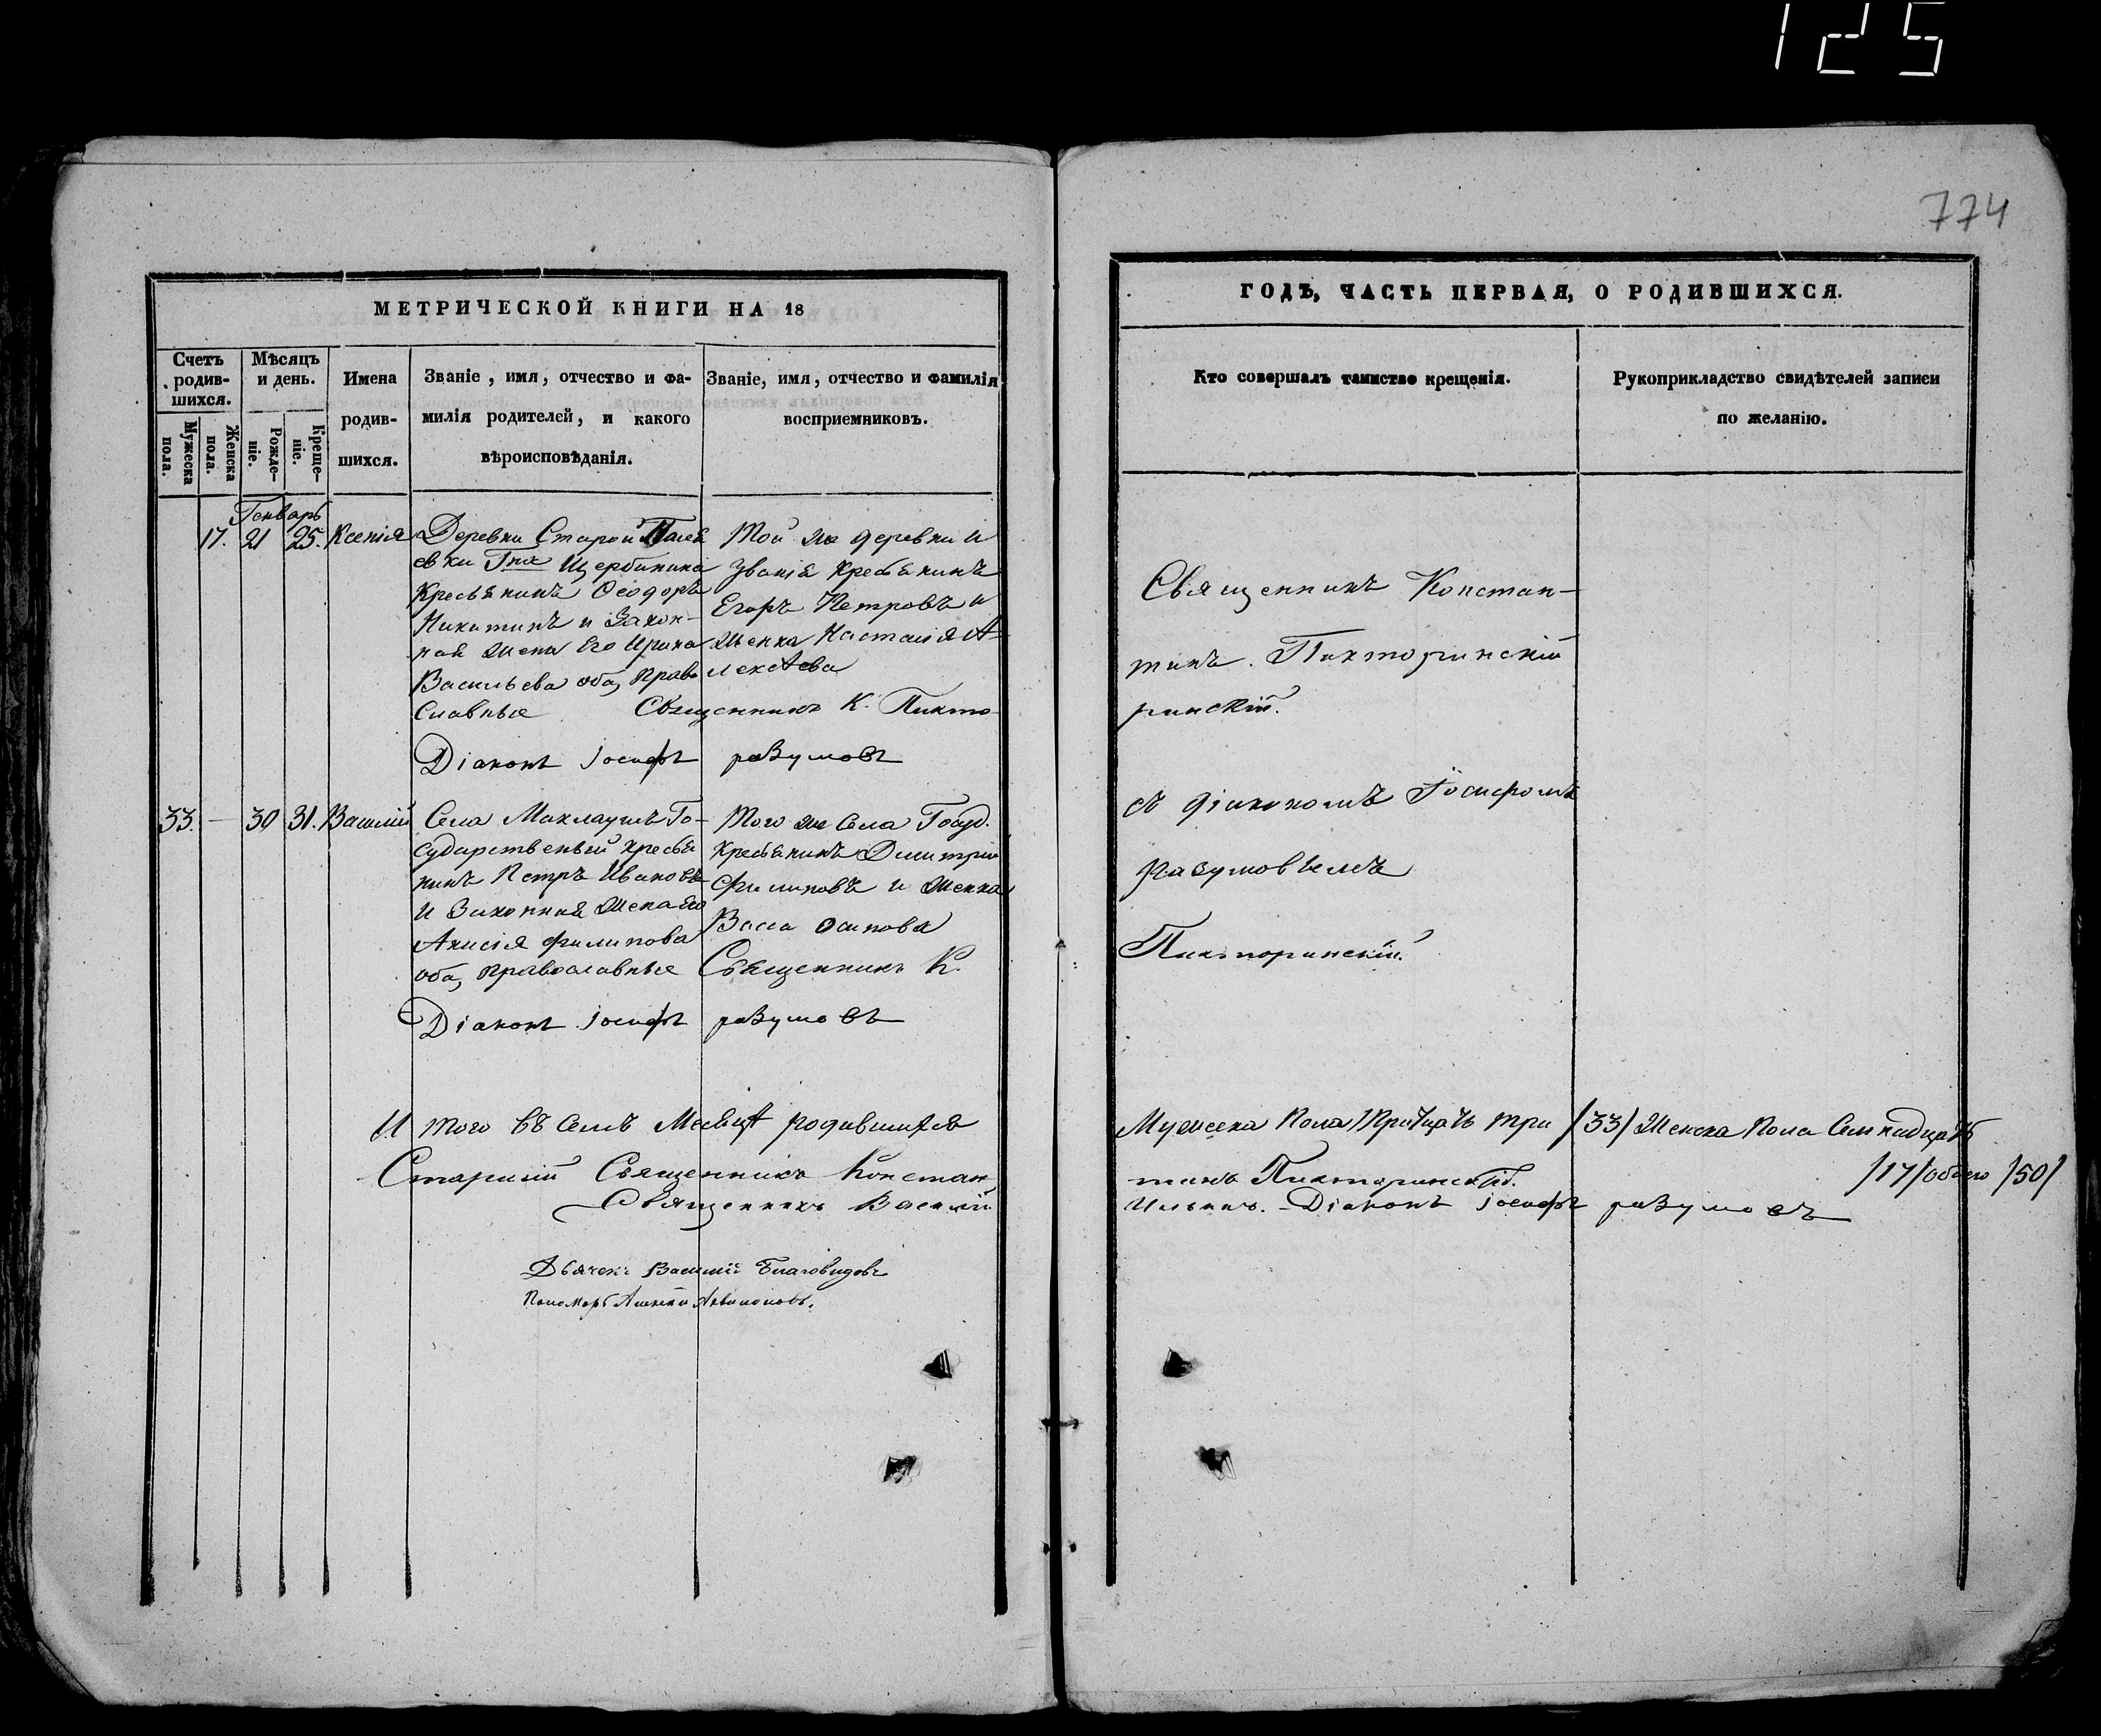 125
774
МЕТРИЧЕСКОЙ КНИГИ НА 18
ГОДЪ, ЧАСТЬ ПЕРВАЯ, О РОДИВШИХСЯ.
Счетъ родившихся.
Мужеска пола.
Женска пола.
Мѣсяцъ и день.
Рожденіе.
Крещеніе.
Имена родившихся.
Званіе, имя, отчество и фамилія родителей, и какого вѣроисповѣданія.
Званіе, имя, отчество и фамилія воспріемниковъ.
Кто совершалъ таинство крещенія.
Рукоприкладство свидѣтелей записи по желанію.
Генварь
17. 21 25. Ксенія
Деревни Старой
евки Гна Щербинина
Крестьянинъ Ѳеодоръ
Никитинъ и Закон-
ная жена Его Ирина
Васильева оба Право
славные
Той же деревни и
званія Крестьянинъ
Егоръ Петровъ и
женка Настасія А-
лексѣева
Священникъ К. Пикто-
ринскій.
Діаконъ Іосифъ разумовъ
Священникъ Констан-
тинъ. Пикторинскій
съ діакономъ Іосифомъ
Разумовымъ
33. — 30 31. Василій
Села Маклаушъ Го-
сударственный крестья
нинъ Петръ Ивановъ
и Законная жена его
Анисія Филипова
оба православные
Того же Села Госуд.
Крестьянинъ Димитрій
Филиповъ и женка
Васса Осипова
Священникъ К.
Пикторинскій.
Діаконъ Іосифъ разумовъ
И того въ Семъ Месяцѣ родившихся
Мужеска Пола Тритцать три /33/ Женска Пола Семнадцать
/17/ обоего /50/
Старшій Священникъ Констан
тинъ Пикторинскій.
Священникъ Василій
Ильинъ. Діаконъ Іосифъ разумовъ
Дьячекъ Василій Благовидовъ
Пономарь Алексѣй